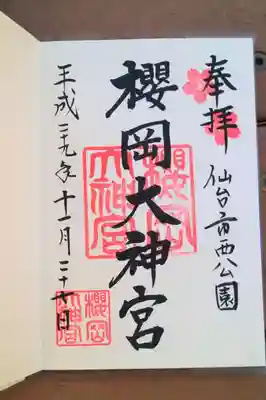 奉拝
仙台市西公園
櫻岡大神宮
櫻岡大神宮
平成二十九年十一月二十七日
櫻岡大神宮